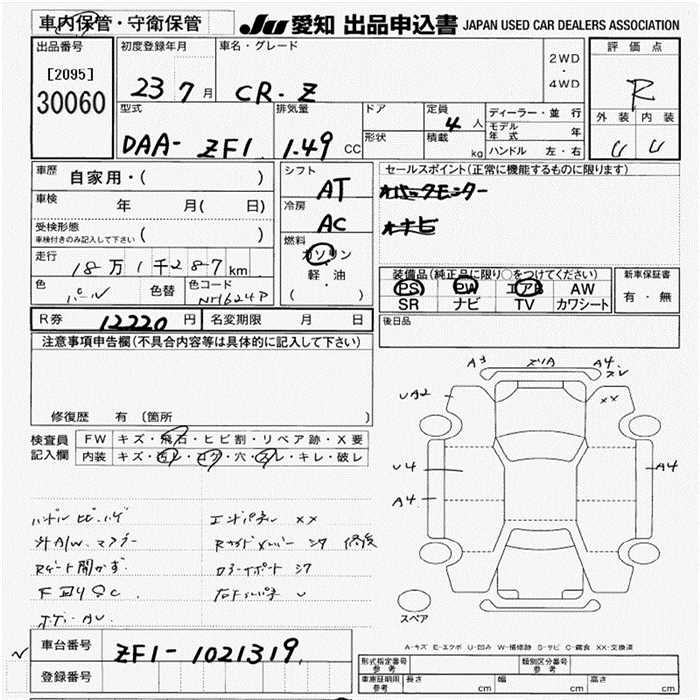 車内保管・守衛保管
JU 愛知 出品申込書 JAPAN USED CAR DEALERS ASSOCIATION
出品番号
[2095]
30060
初度登録年月
23 7 月
車名・グレード
CR-Z
2WD
・
4WD
評価点
R
外装 内装
型式
DAA- ZF1
排気量
1.49 CC
ドア
形状
定員 4 人
積載 kg
ディーラー・並行
モデル年式 年
ハンドル 左・右
車歴
自家用・( )
車検
年 月( 日)
受検形態
車検付きのみ記入して下さい ( )
走行
18万1千287km
色
パール
色替
色コード
NH624P
シフト
AT
冷房
AC
燃料
ガソリン
・
軽・油
( )
セールスポイント(正常に機能するものに限ります)
装備品(純正品に限り○をつけてください)
PS PW エアB AW
SR ナビ TV カワシート
新車保証書
有・無
後日品
R券 12220 円
名変期限 月 日
注意事項申告欄(不具合内容等は具体的に記入して下さい)
修復歴 有(箇所 )
検査員
記入欄
FW キズ・飛石・ヒビ割・リペア跡・X要
内装 キズ・汚レ・コゲ・穴・スレ・キレ・破レ
A3
ズリA
A4
スレ
UA2
XX
U4
A4
A4
エンドパネル XX
外A/W. マフラー
修復
スペア
A-キズ E-エクボ U-凹み W-補修跡 S-サビ C-腐食 XX-交換済
車台番号
ZF1-1021319
登録番号
形式指定番号
参考
類別区分番号
参考
車庫証明用
参考
長さ cm
幅 cm
高さ cm